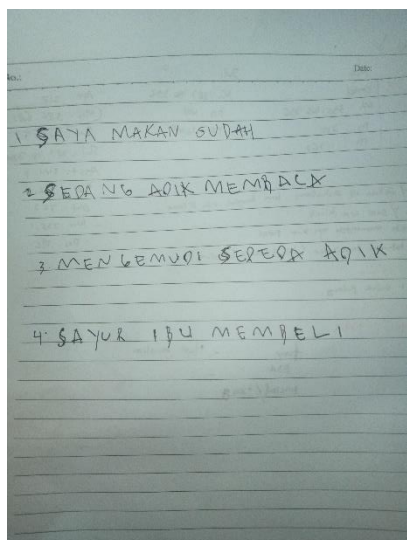 No.:
Date:
1. SAYA MAKAN SUDAH
2. SEDANG ADIK MEMBACA
3. MENGEMUDI SEPEDA ADIK
4. SAYUR IBU MEMBELI